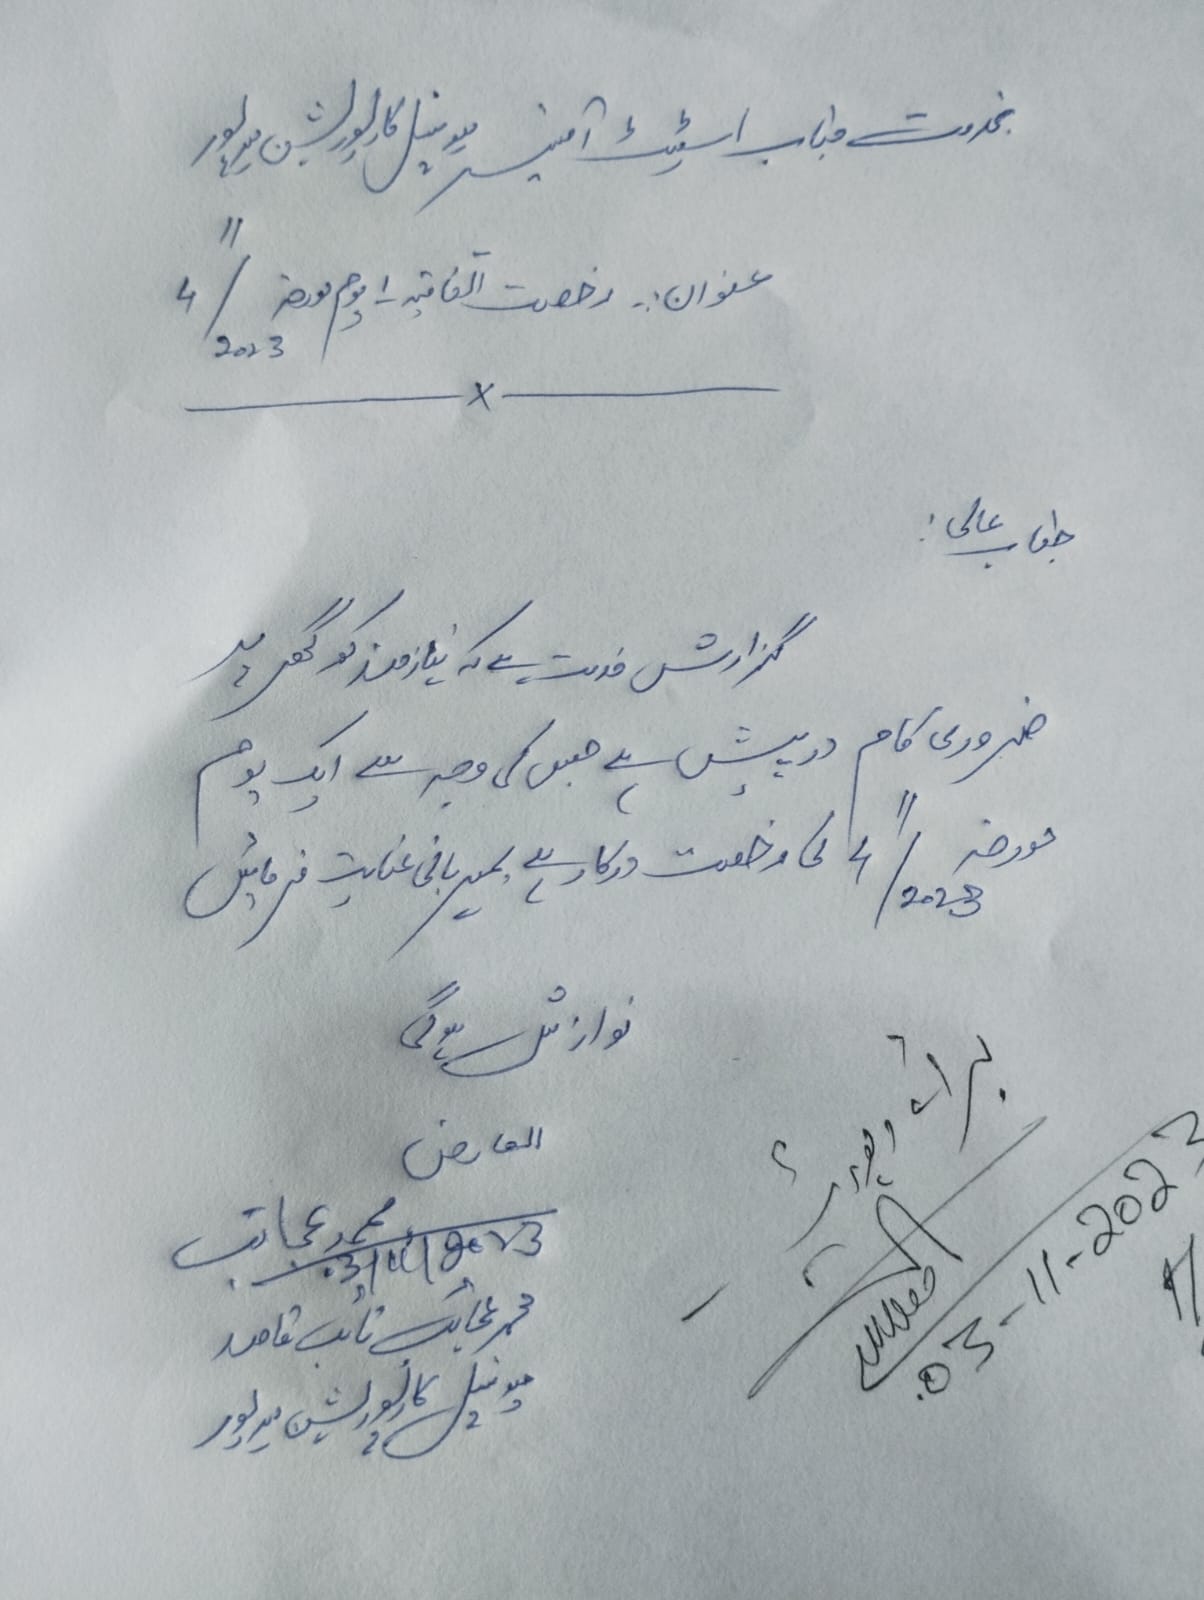 بخدمت جناب اسٹیٹ آفیسر میونسپل کارپوریشن میرپور
عنوان:۔ رخصت اتفاقیہ 1 یوم مورخہ 4/11/2023
x
جناب عالی!
گزارش خدمت ہے کہ نیازمند کو گھر پر
ضروری کام درپیش ہے جس کی وجہ سے ایک یوم
مورخہ 4/11/2023 کی رخصت درکار ہے بمہربانی عنایت فرمائیں
نوازش ہوگی
العارض
محمد عجائب
03/11/2023
محمد عجائب نائب قاصد
میونسپل کارپوریشن میرپور
برائے رپورٹ
03-11-2023